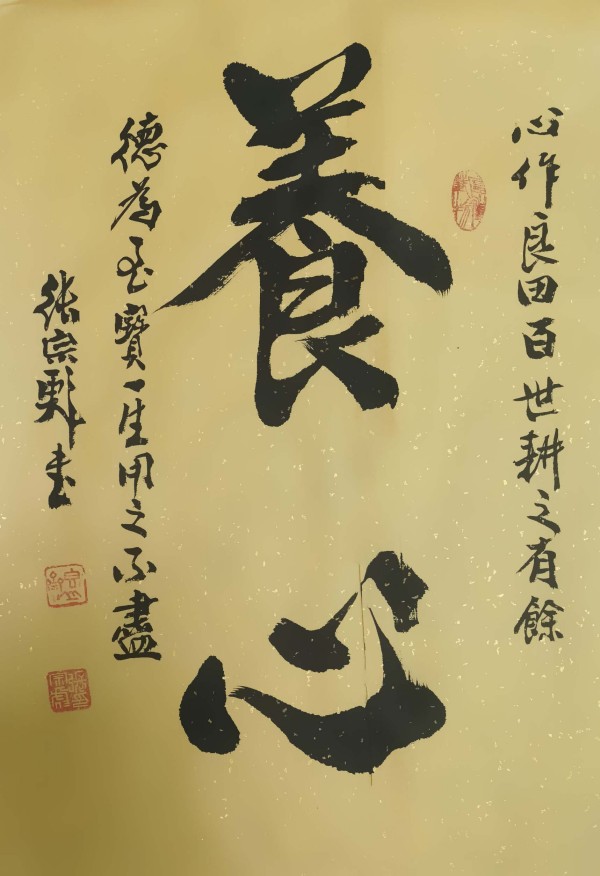 心作良田百世耕之有餘
養心
德為至寶一生用之不盡
張宗彪書